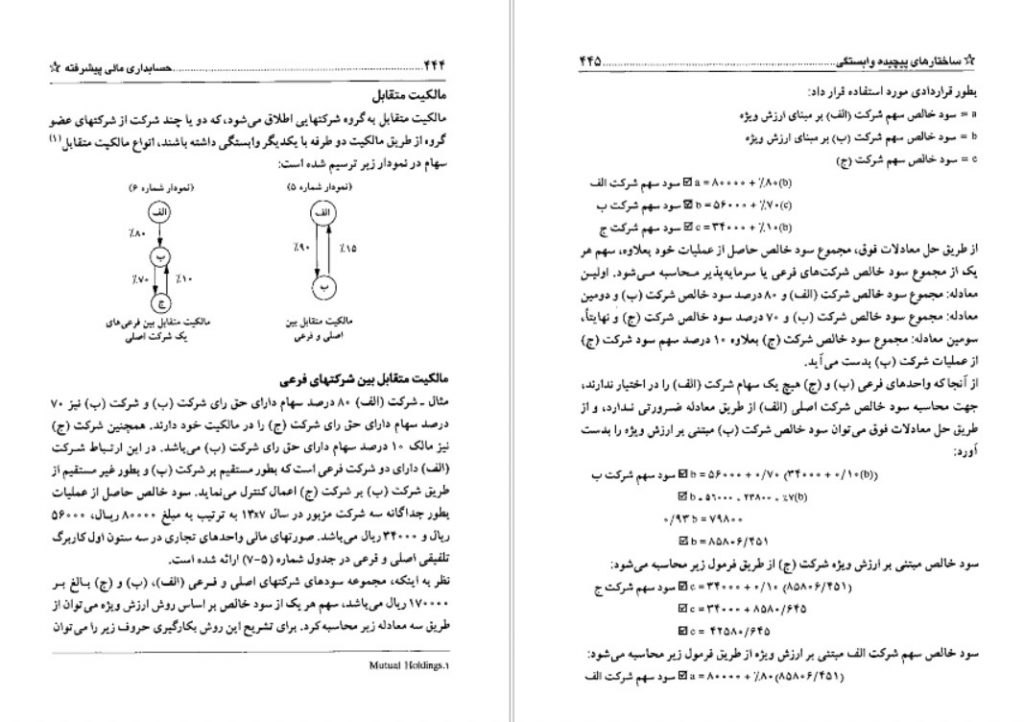 ۴۴۴ ........ حسابداری مالی پیشرفته ☆
مالکیت متقابل
مالکیت متقابل به گروه شرکتهایی اطلاق می‌شود، که دو یا چند شرکت از شرکتهای عضو
گروه از طریق مالکیت دو طرفه با یکدیگر وابستگی داشته باشند، انواع مالکیت متقابل(۱)
سهام در نمودار زیر ترسیم شده است:
(نمودار شماره ۵)
الف
٪۹۰
٪۱۵
ب
مالکیت متقابل بین
اصلی و فرعی
(نمودار شماره ۶)
الف
٪۸۰
ب
٪۷۰
٪۱۰
ج
مالکیت متقابل بین فرعی‌های
یک شرکت اصلی
مالکیت متقابل بین شرکتهای فرعی
مثال ـ شرکت (الف) ۸۰ درصد سهام دارای حق رای شرکت (ب) و شرکت (ب) نیز ۷۰
درصد سهام دارای حق رای شرکت (ج) را در مالکیت خود دارند. همچنین شرکت (ج)
نیز مالک ۱۰ درصد سهام دارای حق رای شرکت (ب) می‌باشد. در این ارتباط شرکت
(الف) دارای دو شرکت فرعی است که بطور مستقیم بر شرکت (ب) و بطور غیر مستقیم از
طریق شرکت (ب) بر شرکت (ج) اعمال کنترل می‌نماید. سود خالص حاصل از عملیات
بطور جداگانه سه شرکت مزبور در سال ۱۳x۷ به ترتیب به مبلغ ۸۰۰۰۰ ریال، ۵۶۰۰۰
ریال و ۳۴۰۰۰ ریال می‌باشد. صورتهای مالی واحدهای تجاری در سه ستون اول کاربرگ
تلفیقی اصلی و فرعی در جدول شماره (۵-۷) ارائه شده است.
نظر به اینکه، مجموعه سودهای شرکتهای اصلی و فرعی (الف)، (ب) و (ج) بالغ بر
۱۷۰۰۰۰ ریال می‌باشد، سهم هر یک از سود خالص بر اساس روش ارزش ویژه می‌توان از
طریق سه معادله زیر محاسبه کرد. برای تشریح این روش بکارگیری حروف زیر را می‌توان
Mutual Holdings.۱
☆ ساختارهای پیچیده وابستگی ........ ۴۴۵
بطور قراردادی مورد استفاده قرار داد:
a = سود خالص سهم شرکت (الف) بر مبنای ارزش ویژه
b = سود خالص سهم شرکت (ب) بر مبنای ارزش ویژه
c = سود خالص سهم شرکت (ج)
سود سهم شرکت الف ☑ a = ۸۰۰۰۰ + ٪۸۰(b)
سود سهم شرکت ب ☑ b = ۵۶۰۰۰ + ٪۷۰(c)
سود سهم شرکت ج ☑ c = ۳۴۰۰۰ + ٪۱۰(b)
از طریق حل معادلات فوق، مجموع سود خالص حاصل از عملیات خود بعلاوه، سهم هر
یک از مجموع سود خالص شرکت‌های فرعی یا سرمایه‌پذیر محاسبه می‌شود. اولین
معادله: مجموع سود خالص شرکت (الف) و ۸۰ درصد سود خالص شرکت (ب) و دومین
معادله: مجموع سود خالص شرکت (ب) و ۷۰ درصد سود خالص شرکت (ج) و نهایتاً،
سومین معادله: مجموع سود خالص شرکت (ج) بعلاوه ۱۰ درصد سهم سود شرکت (ج)
از عملیات شرکت (ب) بدست می‌آید.
از آنجا که واحدهای فرعی (ب) و (ج) هیچ یک سهام شرکت (الف) را در اختیار ندارند،
جهت محاسبه سود خالص شرکت اصلی (الف) از طریق معادله ضرورتی ندارد، و از
طریق حل معادلات فوق می‌توان سود خالص شرکت (ب) مبتنی بر ارزش ویژه را بدست
آورد:
سود سهم شرکت ب ☑ b = ۵۶۰۰۰ + ۰/۷۰ (۳۴۰۰۰ + ۰/۱۰(b))
☑ b = ۵۶۰۰۰ + ۲۳۸۰۰ + ٪۷(b)
۰/۹۳ b = ۷۹۸۰۰
☑ b = ۸۵۸۰۶/۴۵۱
سود خالص مبتنی بر ارزش ویژه شرکت (ج) از طریق فرمول زیر محاسبه می‌شود:
سود سهم شرکت ج ☑ c = ۳۴۰۰۰ + ۰/۱۰ (۸۵۸۰۶/۴۵۱)
☑ c = ۳۴۰۰۰ + ۸۵۸۰/۶۴۵
☑ c = ۴۲۵۸۰/۶۴۵
سود خالص سهم شرکت الف مبتنی بر ارزش ویژه از طریق فرمول زیر محاسبه می‌شود:
سود سهم شرکت الف ☑ a = ۸۰۰۰۰ + ٪۸۰(۸۵۸۰۶/۴۵۱)